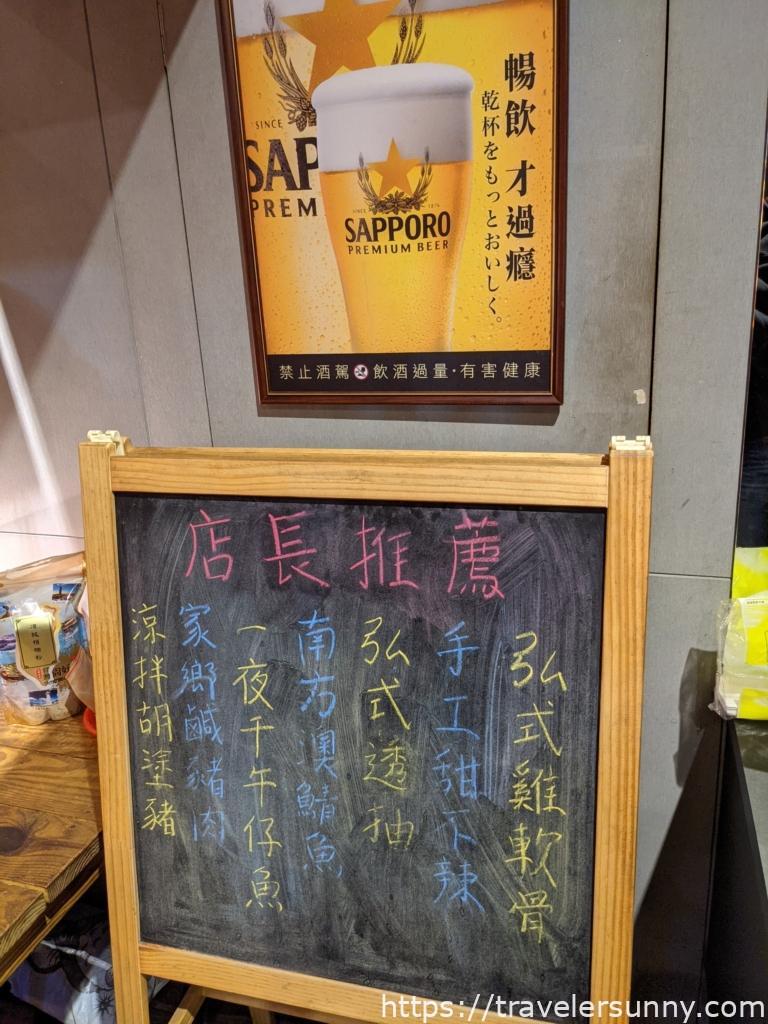 SINCE
SAP
PREM
SINCE 1876
SAPPORO
PREMIUM BEER
暢飲 才過癮
乾杯をもっとおいしく。
禁止酒駕 飲酒過量·有害健康
店長推薦
弘式雞軟骨
手工甜不辣
弘式透抽
南方澳鯖魚
一夜干午仔魚
家鄉鹹豬肉
涼拌胡塗豬
https://travelersunny.com